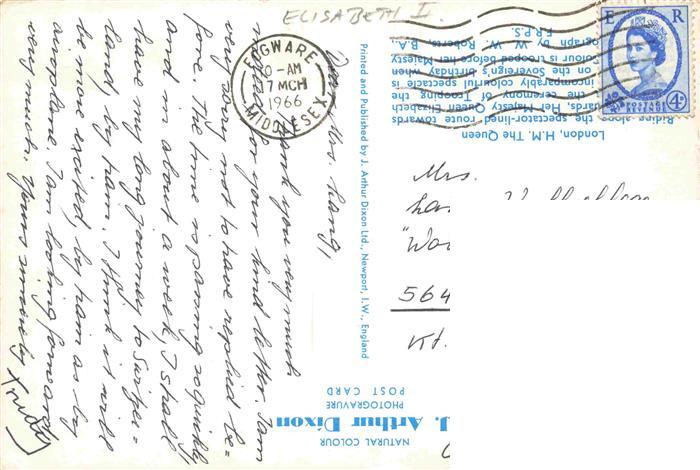 ELISABETH II.
EDGWARE
10-AM
17 MCH
1966
MIDDLESEX
E R
POSTAGE
REVENUE
4D
Dear Mrs. Lang,
Thank you very much
indeed for your kind letter. I am
very sorry not to have replied be=
fore. The time is passing so quickly
and in about a week, I shall
have my long journey to Switzer=
land, by train. I think it will
be more excited by train as by
aeroplane. I am looking forward
very much. Yours sincerely Trudy
Printed and Published by J. Arthur Dixon Ltd., Newport, I.W., England
London, H.M. The Queen
Riding along the spectator-lined route towards
Guards, Her Majesty Queen Elizabeth
the ceremony of Trooping the
on the Sovereign's birthday when
incomparably colourful spectacle is
Colour is trooped before her Majesty
ograph by W. W. Roberts, B.A.,
F.R.P.S.
Mrs.
564
Kt.
NATURAL COLOUR
J. Arthur Dixon
PHOTOGRAVURE
POST CARD